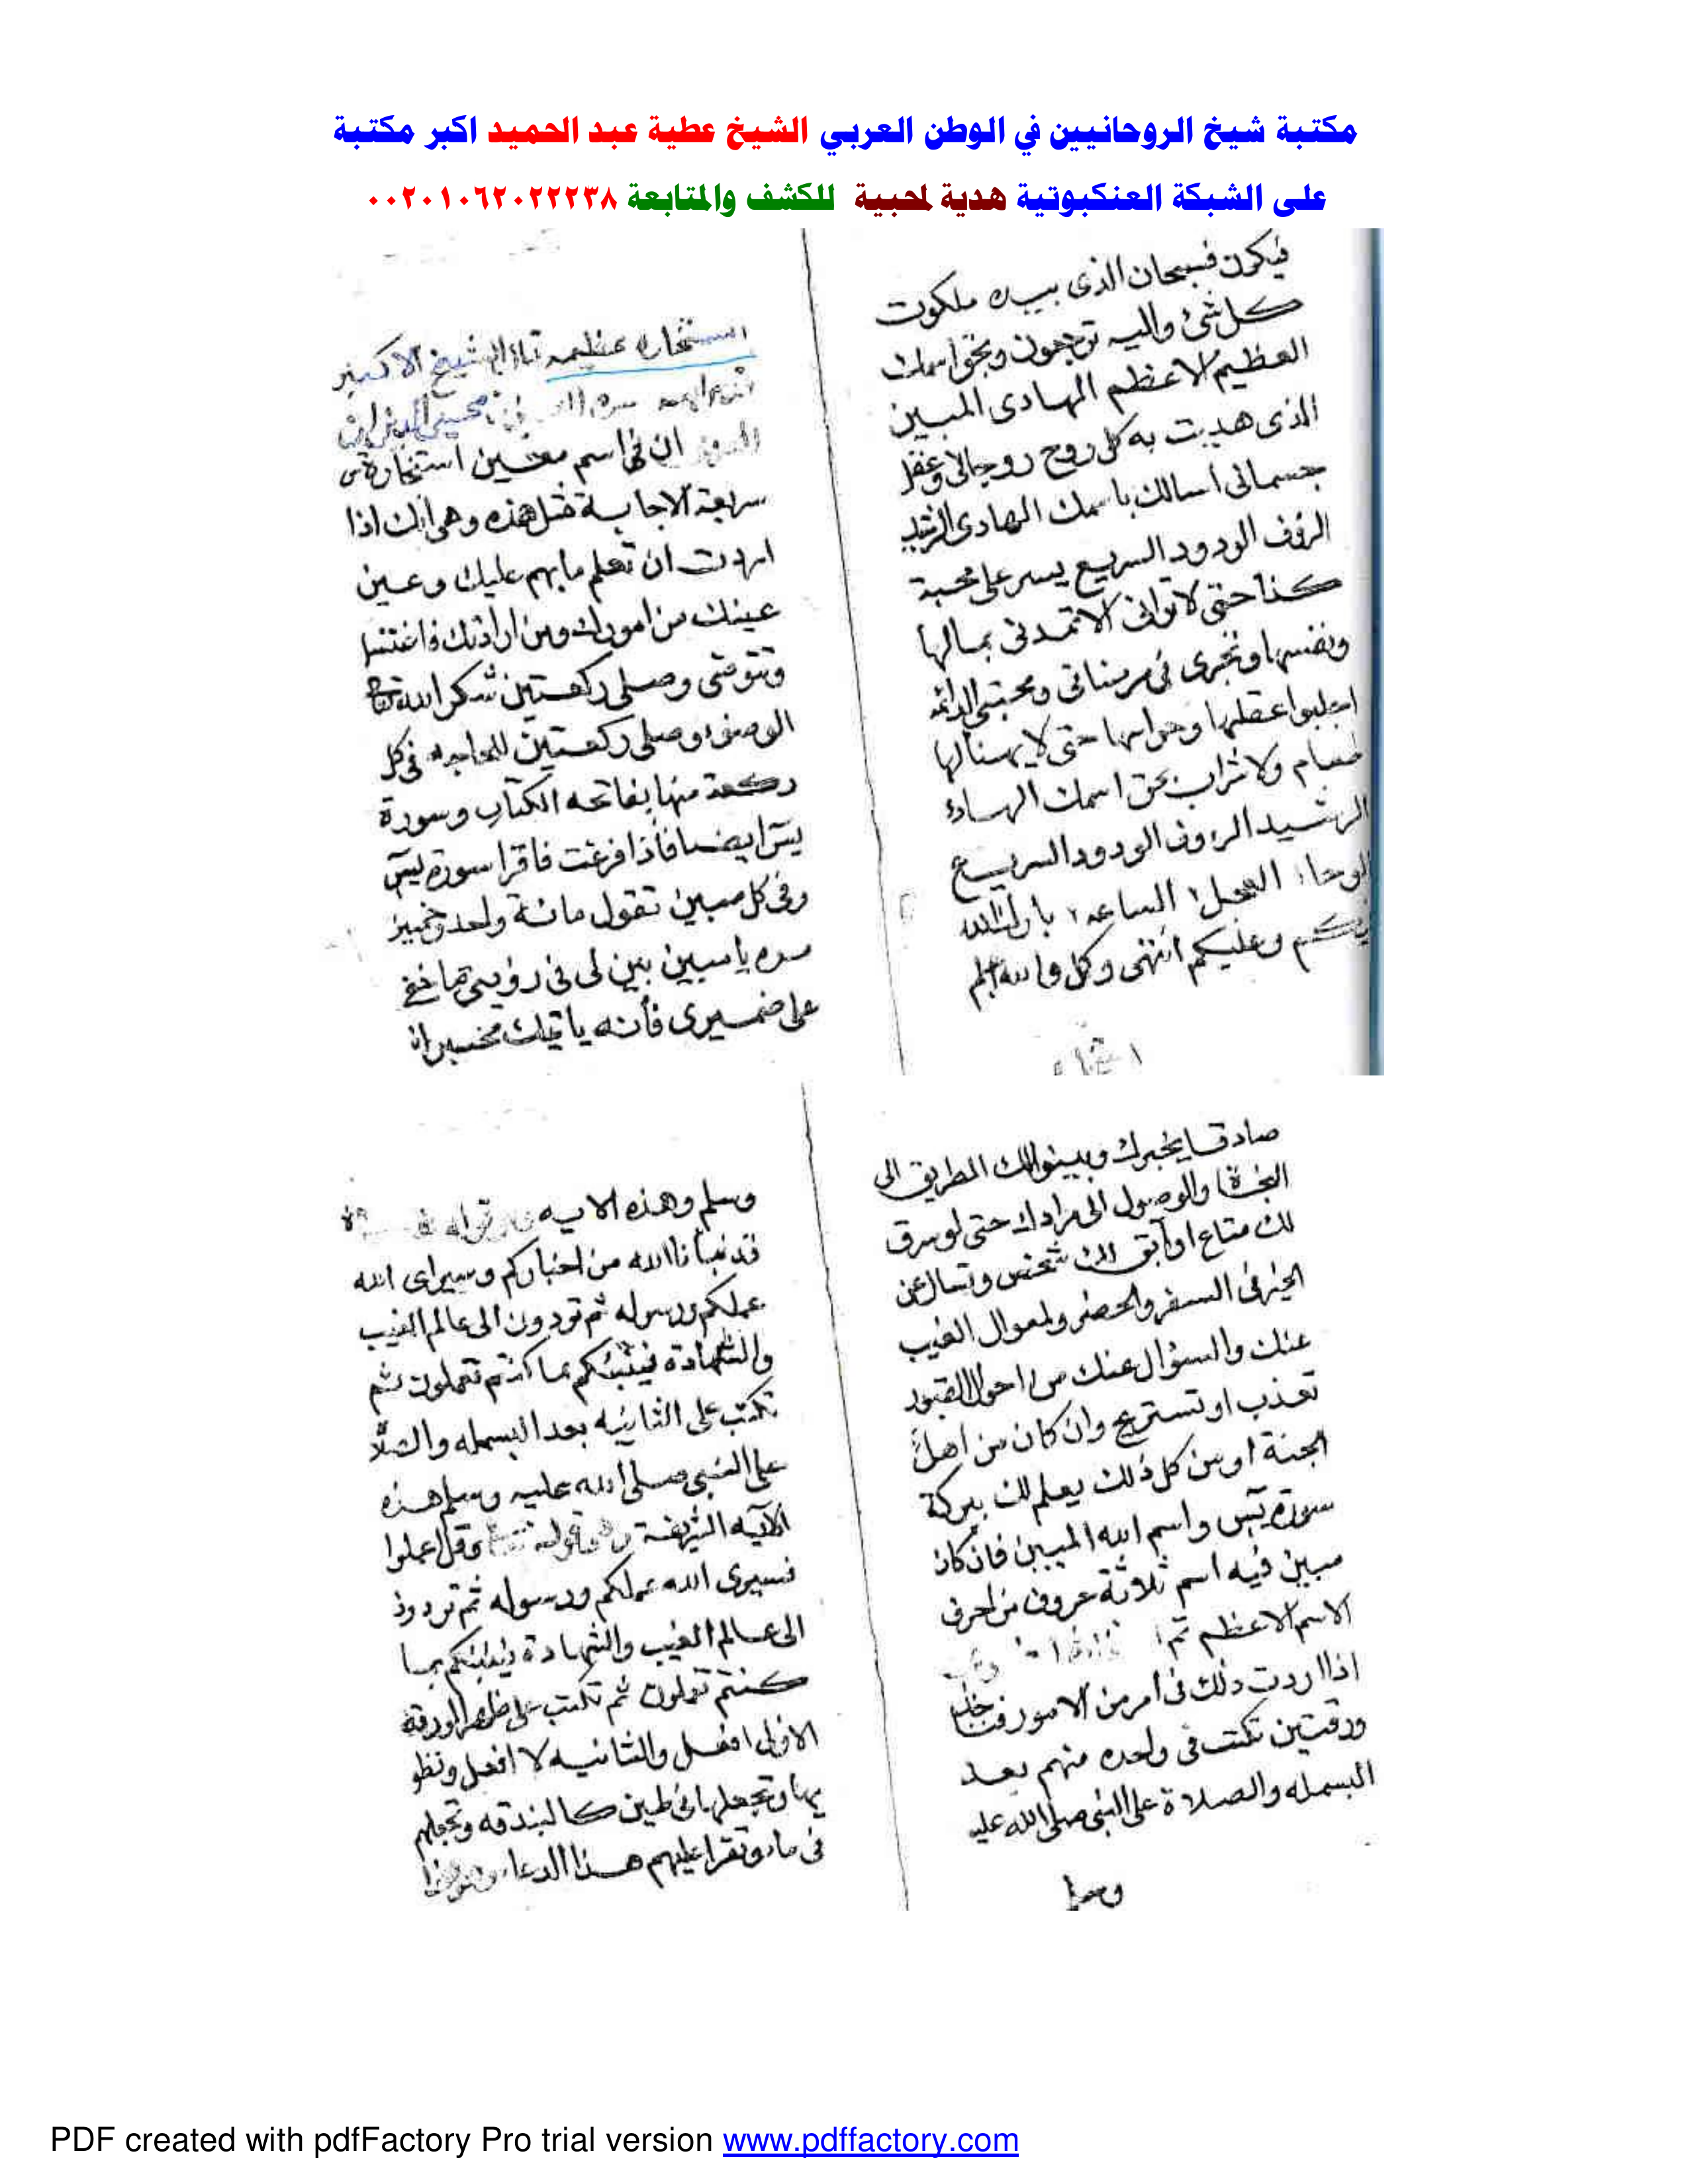 مكتبة شيخ الروحانيين في الوطن العربي الشيخ عطية عبد الحميد اكبر مكتبة
على الشبكة العنكبوتية هدية لمحبية للكشف والمتابعة ٠٠٢٠١٠٦٢٠٢٢٢٣٨
فيكون فسبحان الذى بيده ملكوت
كل شئ واليه ترجعون وبحق اسمك
العظيم الاعظم الهادى المبين
الذى هديت به كل روح روحانى وعقل
جسمانى اسالك باسمك الهادى الرشيد
الرؤف الودود السريع يسر على محبة
كذا حتى لا توانى الا تمدنى بمالها
ونفسها وتجرى فى مرضاتى ومحبتى الدائمه
اجلبوا عقلها وحواسها حتى لا يهنالها
طعام ولا شراب بحق اسمك الهادى
الرشيد الرءوف الودود السريع
الوحا٢ العجل٢ الساعه٢ بارك الله
فيكم وعليكم انتهى وكل والله اعلم
استخاره عظيمه الشيخ الاكبر
محيى الدين ابن
ان فى اسم مبين استخارة
سريعة الاجابة مثل هذه وهى انك اذا
اردت ان تعلم مابهم عليك وعين
عينك من امورك ومن ارادتك فاغتسل
وتتوضى وصلى ركعتين شكر الله
الوضوء وصلى ركعتين للحاجه فى كل
ركعة منها بفاتحه الكتاب وسورة
يس ايضا فأذا فرغت فاقرا سورة يس
وفى كل مبين تقول مائة واحد وخمسين
مره يا مبين بين لى فى رؤيتى ما خفى
على ضميرى فأنه ياتيك مخبرا
صادقا يخبرك ويبينوا لك الطريق الى
النجاة والوصول الى مرادك حتى لو سرق
لك متاع او ابق لك شخص وتسال عن
الخير فى السفر والحضر ولمعوال الغيب
عنك والسؤال عنك من احوال القبور
تعذب او تستريح وان كان من اهل
الجنة او من كل ذلك يعلم لك ببركة
سورة يس واسم الله المبين فان كان
مبين فيه اسم ثلاثة حروف من احرف
الاسم الاعظم تم
اذا اردت ذلك فى امر من الامور فتاخذ
ورقتين تكتب فى واحده منهم بعد
البسمله والصلاة على النبى صلى الله عليه
وسلم
وسلم وهذه الايه
قد نبأنا الله من اخباركم وسيرى الله
عملكم ورسوله ثم تردون الى عالم الغيب
والشهادة فينبئكم بما كنتم تعملون ثم
تكتب على الثانيه بعد البسمله والصلاة
على النبى صلى الله عليه وسلم هذه
الآيه الشريفة وقل اعملوا
فسيرى الله عملكم ورسوله ثم تردون
الى عالم الغيب والشهادة فينبئكم بما
كنتم تعملون ثم تكتب على ظهر الورقه
الاولى افعل والثانيه لا افعل وتطو
يها وتجعلها فى طين كالبندقه وتجعلهم
فى ماء وتقرا عليهم هذا الدعاء
PDF created with pdfFactory Pro trial version www.pdffactory.com